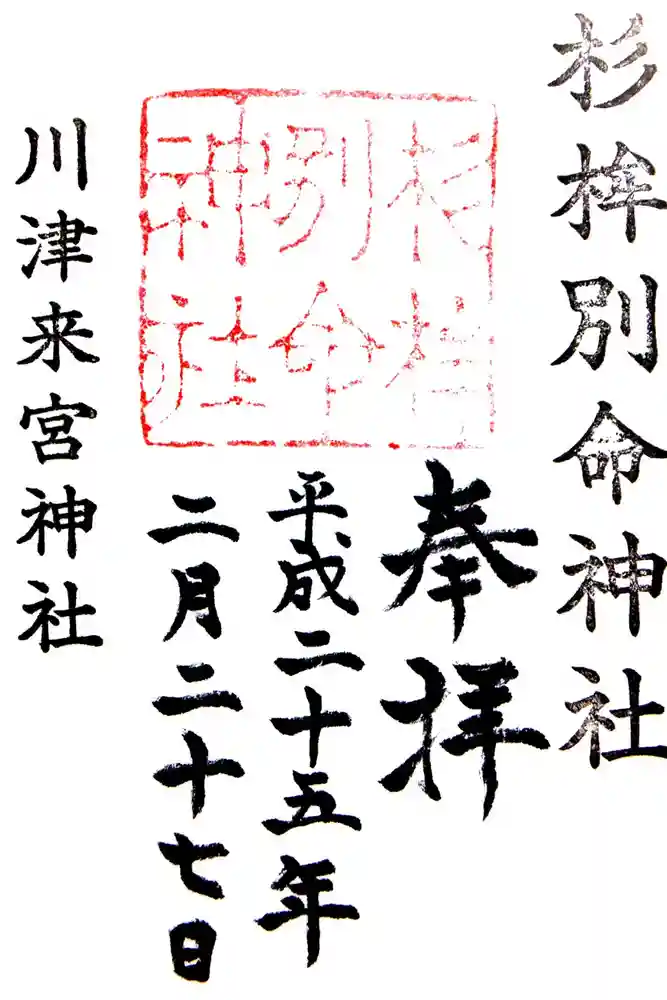 杉桙別命神社
奉拝
杉桙
別命
神社
平成二十五年
二月二十七日
川津来宮神社